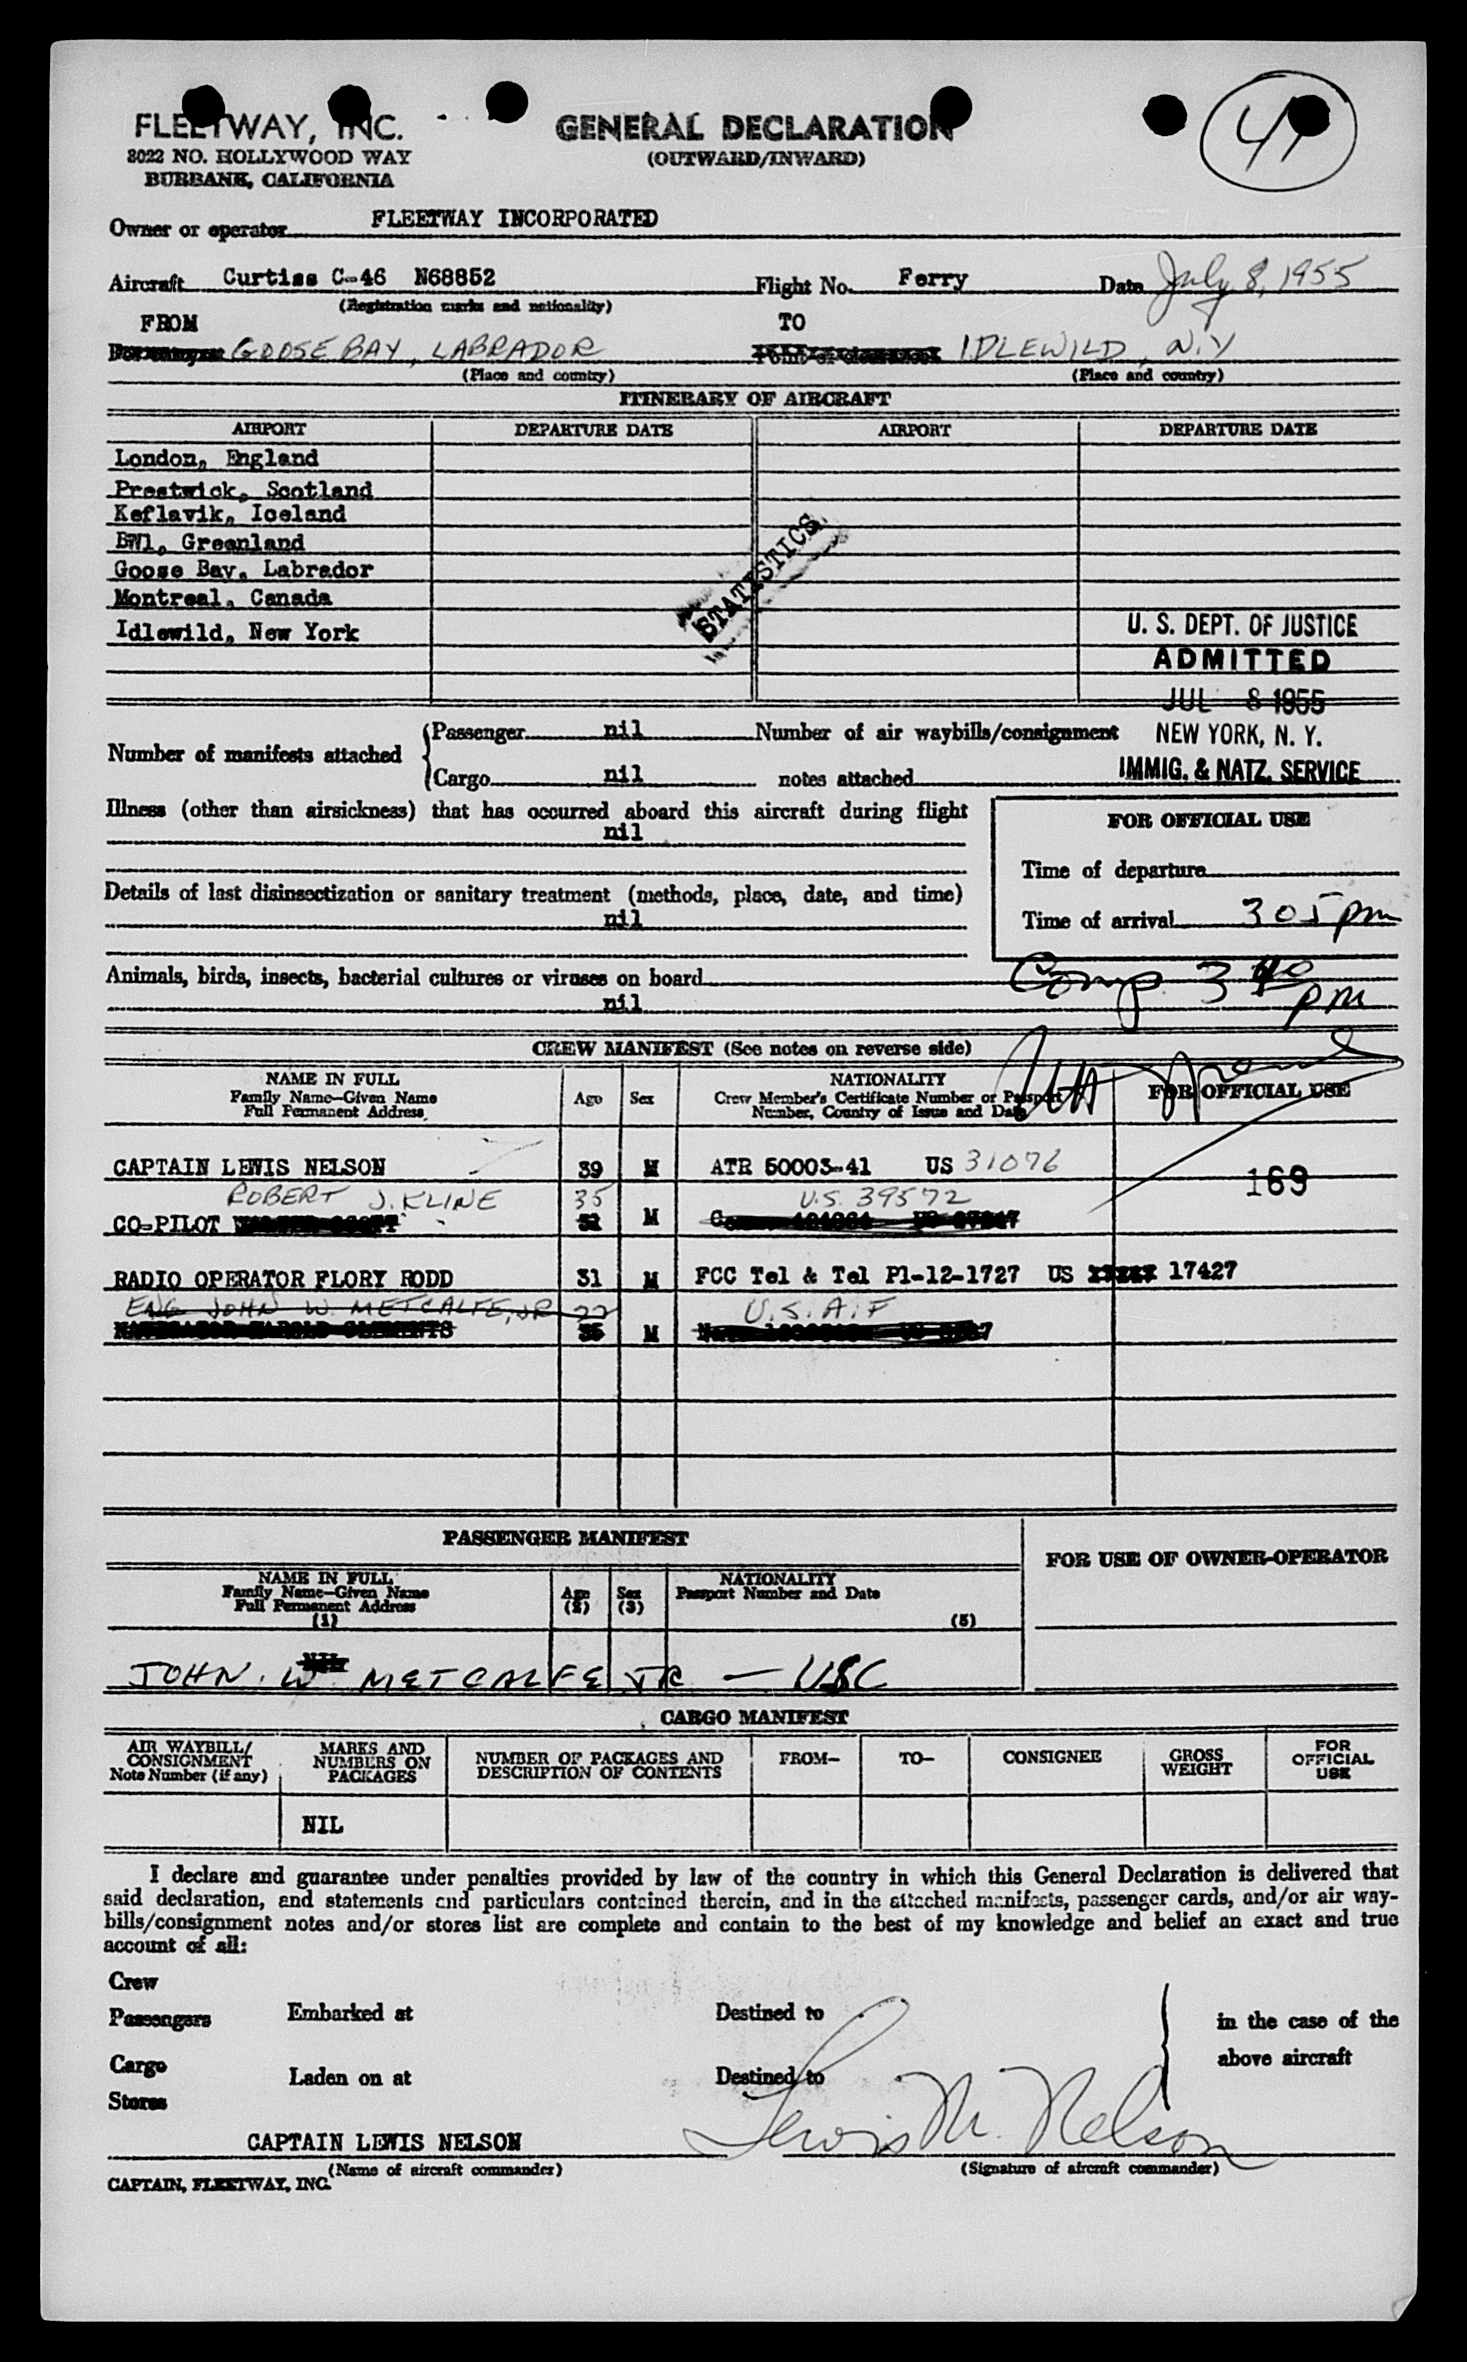 FLEETWAY, INC.
3022 NO. HOLLYWOOD WAY
BURBANK, CALIFORNIA
GENERAL DECLARATION
(OUTWARD/INWARD)
41
Owner or operator FLEETWAY INCORPORATED
Aircraft Curtiss C-46 N68852 Flight No. Ferry Date July 8, 1955
(Registration marks and nationality)
FROM TO
GOOSE BAY, LABRADOR Point of clearance IDLEWILD, N.Y
(Place and country) (Place and country)
ITINERARY OF AIRCRAFT
AIRPORT DEPARTURE DATE AIRPORT DEPARTURE DATE
London, England
Prestwick, Scotland
Keflavik, Iceland
BW1, Greenland
Goose Bay, Labrador
Montreal, Canada
Idlewild, New York
STATISTICS
U. S. DEPT. OF JUSTICE
ADMITTED
JUL 8 1955
NEW YORK, N. Y.
IMMIG. & NATZ. SERVICE
Number of manifests attached
Passenger nil Number of air waybills/consignment
Cargo nil notes attached
Illness (other than airsickness) that has occurred aboard this aircraft during flight
nil
Details of last disinsectization or sanitary treatment (methods, place, date, and time)
nil
Animals, birds, insects, bacterial cultures or viruses on board
nil
FOR OFFICIAL USE
Time of departure
Time of arrival 305 pm
Comp 340
pm
CREW MANIFEST (See notes on reverse side)
NAME IN FULL
Family Name—Given Name
Full Permanent Address
Age Sex
NATIONALITY
Crew Member's Certificate Number or Passport
Number, Country of Issue and Date
FOR OFFICIAL USE
CAPTAIN LEWIS NELSON 39 M ATR 50003-41 US 31076
169
ROBERT J. KLINE 35 U.S. 39572
CO-PILOT 32 M
RADIO OPERATOR FLORY RODD 31 M FCC Tel & Tel P1-12-1727 US 17427
ENG JOHN W. METCALFE, JR 22 U.S.A.F
35 M
PASSENGER MANIFEST
FOR USE OF OWNER-OPERATOR
NAME IN FULL
Family Name—Given Name
Full Permanent Address
(1)
Age
(2)
Sex
(3)
NATIONALITY
Passport Number and Date
(5)
NIL
JOHN. W. METCALFE JR — USC
CARGO MANIFEST
AIR WAYBILL/
CONSIGNMENT
Note Number (if any)
MARKS AND
NUMBERS ON
PACKAGES
NUMBER OF PACKAGES AND
DESCRIPTION OF CONTENTS
FROM—
TO—
CONSIGNEE
GROSS
WEIGHT
FOR
OFFICIAL
USE
NIL
I declare and guarantee under penalties provided by law of the country in which this General Declaration is delivered that
said declaration, and statements and particulars contained therein, and in the attached manifests, passenger cards, and/or air way-
bills/consignment notes and/or stores list are complete and contain to the best of my knowledge and belief an exact and true
account of all:
Crew
Passengers Embarked at Destined to in the case of the
Cargo above aircraft
Laden on at Destined to
Stores
CAPTAIN LEWIS NELSON Lewis M. Nelson
(Name of aircraft commander) (Signature of aircraft commander)
CAPTAIN, FLEETWAY, INC.